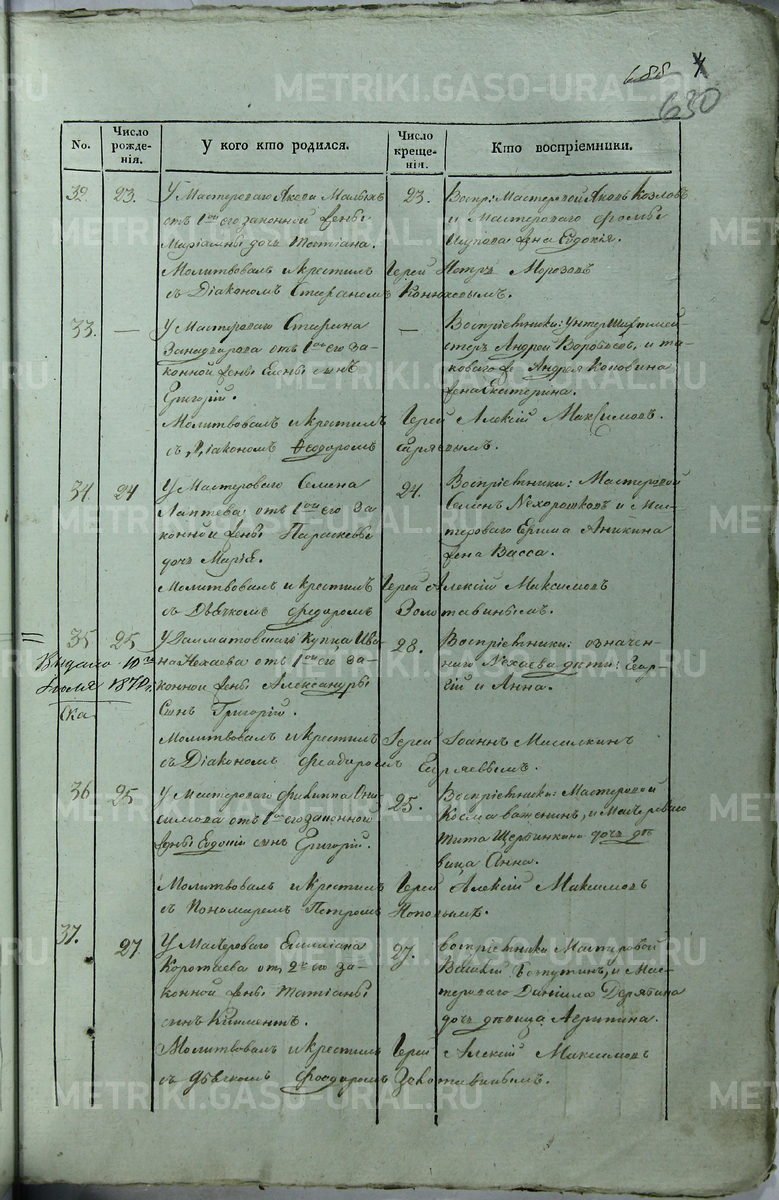 688
630
No. | Число рожде-нія. | У кого кто родился. | Число креще-нія. | Кто воспріемники.
32. | 23. | У Мастероваго Якова Малыхъ | 23. | Воспр: Мастеровой Яковъ Козловъ
отъ 1ой его законной жены | и Мастероваго Фомы
Маріамны дочь Татіана. | жена Евдокія.
Молитвовалъ и крестилъ Іерей Петръ Морозовъ
съ Діакономъ Стефаномъ Конюховымъ.
33. | — | У Мастероваго | — | Воспріемники: Унтершихтмей-
отъ 1ой его за- | стеръ Андрей Воробьевъ, и та-
конной жены Елены сынъ | коваго же Андрея Коковина
Григорій. | жена Екатерина.
Молитвовалъ и крестилъ Іерей Алексій Максимовъ.
съ Діакономъ Ѳеодоромъ Сиряевымъ.
34. | 24 | У Мастероваго Семена | 24. | Воспріемники: Мастеровой
Лаптева отъ 1ой его за- | Семенъ Нехорошковъ и Мас-
конной жены Параскевы | тероваго Ефима Аникина
дочь Марія. | жена Васса.
Молитвовалъ и крестилъ Іерей Алексій Максимовъ
съ Дьячкомъ Федоромъ Золотавинымъ.
35 | 25 | У Далматовскаго Купца Ива- | 28. | Воспріемники: означен-
Выдано 10го | на Нехаева отъ 1ой его за- | наго Нехаева дѣти: Геор-
Іюля 1872 г. | конной жены Александры | гій и Анна.
Сынъ Григорій.
Молитвовалъ и крестилъ Іерей Іоаннъ
съ Діакономъ Феодоромъ Сиряевымъ.
36 | 25 | У Мастероваго Филиппа Они- | 25. | Воспріемники: Мастеровой
симова отъ 1ой его законной | Косма Важенинъ, и Мастероваго
жены Евдокіи сынъ Григорій. | Тита Щербинкина дочь дѣ-
вица Анна.
Молитвовалъ и крестилъ Іерей Алексій Максимовъ
съ Пономаремъ Петромъ Поповымъ.
37. | 27. | У Мастероваго Емиліана | 27. | Воспріемники Мастеровой
Коротаева отъ 2й его за- | и Мас-
конной жены Татіаны | тероваго Даніила Дерябина
сынъ Климентъ. | дочь дѣвица Агрипина.
Молитвовалъ и крестилъ Іерей Алексій Максимовъ
съ дьячкомъ Феодоромъ Золотавинымъ.
METRIKI.GASO-URAL.RU